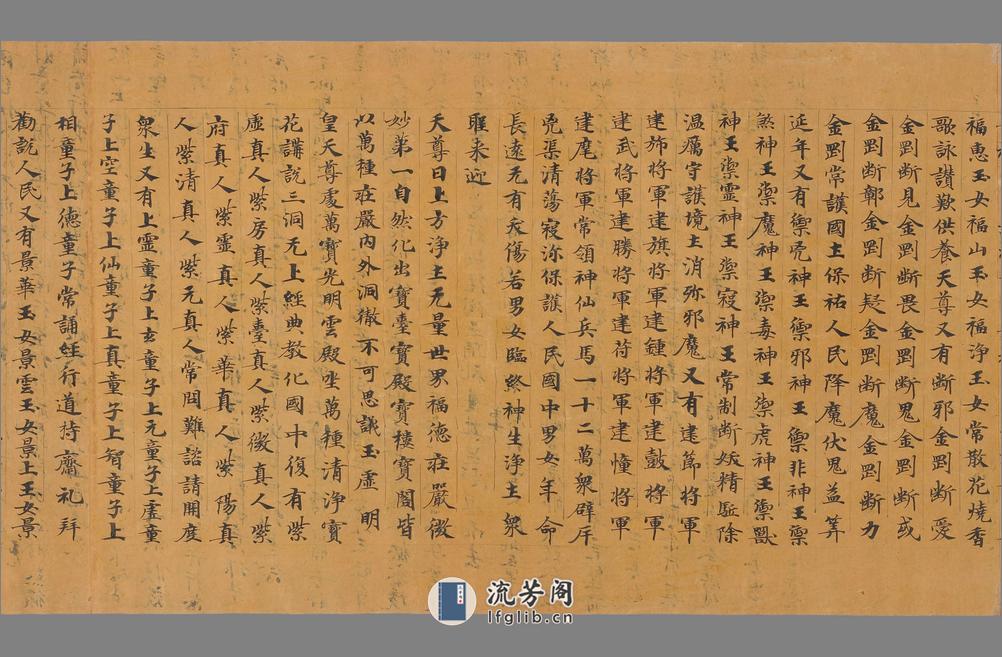 福惠玉女福山玉女福淨玉女常散花燒香
歌詠讃歎供養天尊又有断邪金剛断愛
金剛断見金剛断畏金剛断鬼金剛断或
金剛断鄣金剛断疑金剛断魔金剛断力
金剛常護國主保祐人民降魔伏鬼益筭
延年又有禦兇神王禦邪神王禦非神王禦
煞神王禦魔神王禦毒神王禦虎神王禦獸
神王禦靈神王禦寇神王常制断妖精駈除
温癘守護境土消弥邪魔又有建節將軍
建斾將軍建旗將軍建鍾將軍建鼓將軍
建武將軍建勝將軍建苻將軍建憧將軍
建麾將軍常領神仙兵馬一十二萬衆辟斥
兇渠清蕩寇㳽保護人民國中男女年命
長遠无有夭傷若男女臨終神生淨土衆
聖來迎
天尊曰上方淨土无量世界福德莊嚴微
妙第一自然化出寶臺寶殿寶樓寶閣皆
以萬種莊嚴内外洞徹不可思議玉虚明
皇天尊處萬寶光明雲殿坐萬種清淨寶
花講説三洞无上經典教化國中復有紫
虚真人紫房真人紫臺真人紫微真人紫
府真人紫靈真人紫華真人紫陽真
人紫清真人紫元真人常問難諮請開度
衆生又有上靈童子上玄童子上元童子上虚童
子上空童子上仙童子上真童子上智童子上
相童子上德童子常誦經行道持齋礼拜
勸説人民又有景華玉女景雲玉女景上玉女景
流芳阁
lfglib.cn